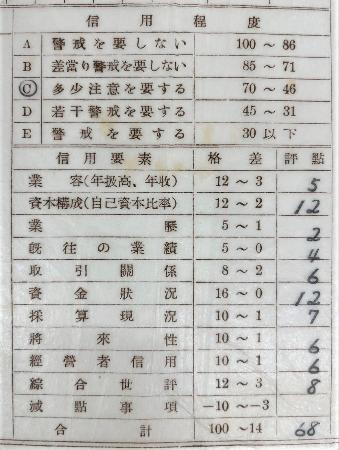 信用程度
A 警戒を要しない 100～86
B 差當り警戒を要しない 85～71
C 多少注意を要する 70～46
D 若干警戒を要する 45～31
E 警戒を要する 30以下
信用要素 格差 評點
業容(年扱高、年收) 12～3 5
資本構成(自己資本比率) 12～2 12
業歷 5～1 2
旣往の業績 5～0 4
取引關係 8～2 6
資金狀況 16～0 12
採算現況 10～1 7
將來性 10～1 6
經營者信用 10～1 6
綜合世評 12～3 8
減點事項 -10～-3
合計 100～14 68